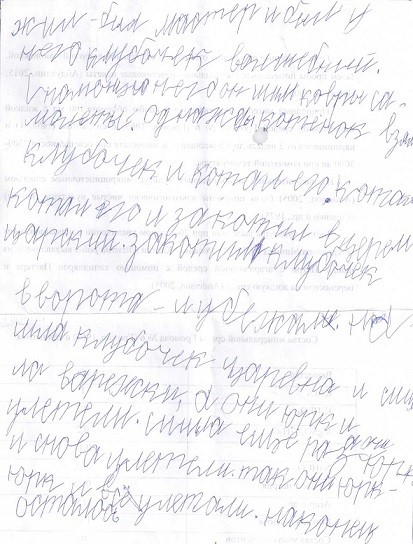 жил-был мастер и был у
него клубочек волшебный.
с помощью него он шил ковры са-
молёты. однажды котёнок взял
клубочек и катал его. ката
катал его и закатил в терем
царский. закатил клубочек
в ворота - и убежал. на
шла клубочек царевна и сши
ла варежки, а они юрк и
улетели. сшила ещё
и снова улетели. так они юрк-
юрк и улетали. наконец